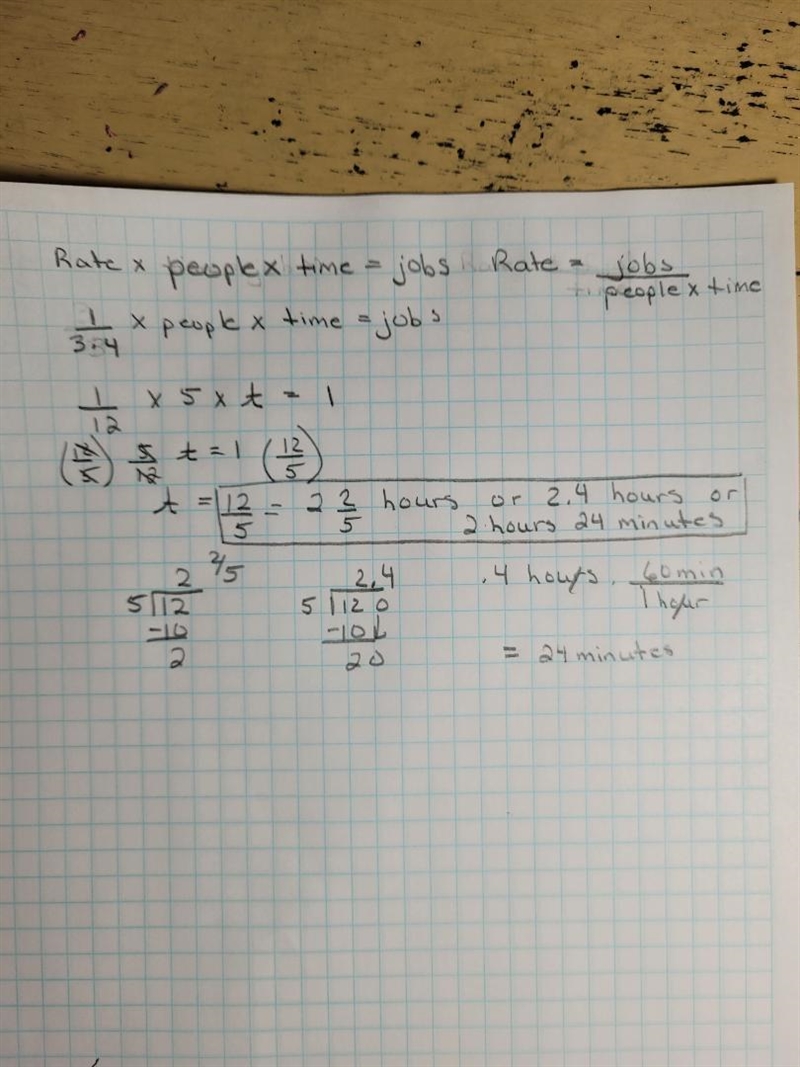 Rate x people x time = jobs Rate = jobs / people x time
1/3·4 x people x time = jobs
1/12 x 5 x t = 1
(12/5) 5/12 t = 1 (12/5)
t = 12/5 = 2 2/5 hours or 2.4 hours or
2 hours 24 minutes
2 2/5 2.4 .4 hours · 60 min / 1 hour
5 12 5 120
-10 -10↓
2 20 = 24 minutes